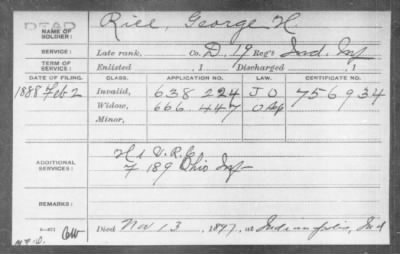 DEAD
NAME OF SOLDIER: Rice, George H.
SERVICE: Late rank, Co. D, 19 Reg't Ind. Inf
TERM OF SERVICE: Enlisted , 1 Discharged , 1
DATE OF FILING. CLASS. APPLICATION NO. LAW. CERTIFICATE NO.
1888 Feb 2 Invalid, 638 224 J O 756 934
Widow, 666 447
Minor,
ADDITIONAL SERVICES: H
F 189 Ohio Inf
REMARKS:
Died Nov 13, 1897, at Indianapolis, Ind